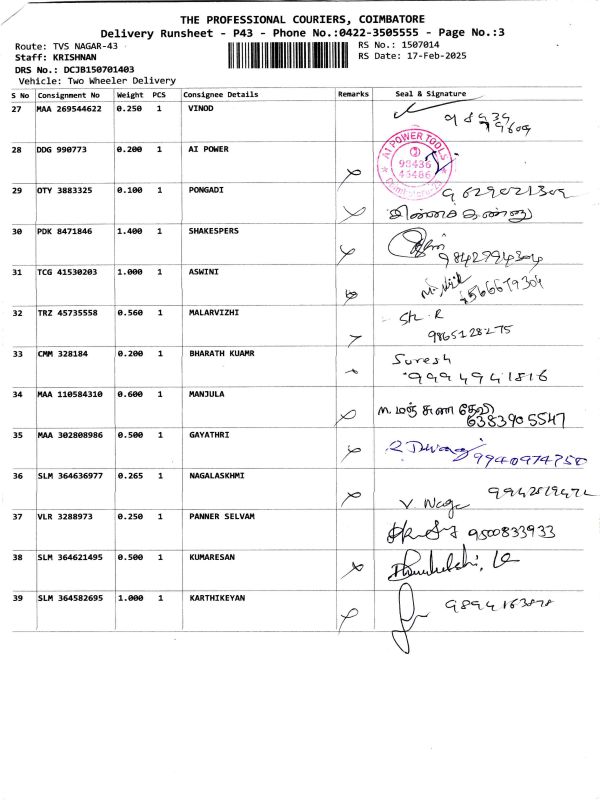 THE PROFESSIONAL COURIERS, COIMBATORE
Delivery Runsheet - P43 - Phone No.:0422-3505555 - Page No.:3
Route: TVS NAGAR-43 RS No.: 1507014
Staff: KRISHNAN RS Date: 17-Feb-2025
DRS No.: DCJB150701403
Vehicle: Two Wheeler Delivery
S No Consignment No Weight PCS Consignee Details Remarks Seal & Signature
27 MAA 269544622 0.250 1 VINOD
28 DDG 990773 0.200 1 AI POWER A1 POWER TOOLS
29 OTY 3883325 0.100 1 PONGADI 9629021309
30 PDK 8471846 1.400 1 SHAKESPERS 9842994304
31 TCG 41530203 1.000 1 ASWINI
32 TRZ 45735558 0.560 1 MALARVIZHI 9865128275
33 CMM 328184 0.200 1 BHARATH KUAMR Suresh
9994941816
34 MAA 110584310 0.600 1 MANJULA
6383905547
35 MAA 302808986 0.500 1 GAYATHRI 9940974750
36 SLM 364636977 0.265 1 NAGALASKHMI V. Naga
37 VLR 3288973 0.250 1 PANNER SELVAM 9500833933
38 SLM 364621495 0.500 1 KUMARESAN
39 SLM 364582695 1.000 1 KARTHIKEYAN